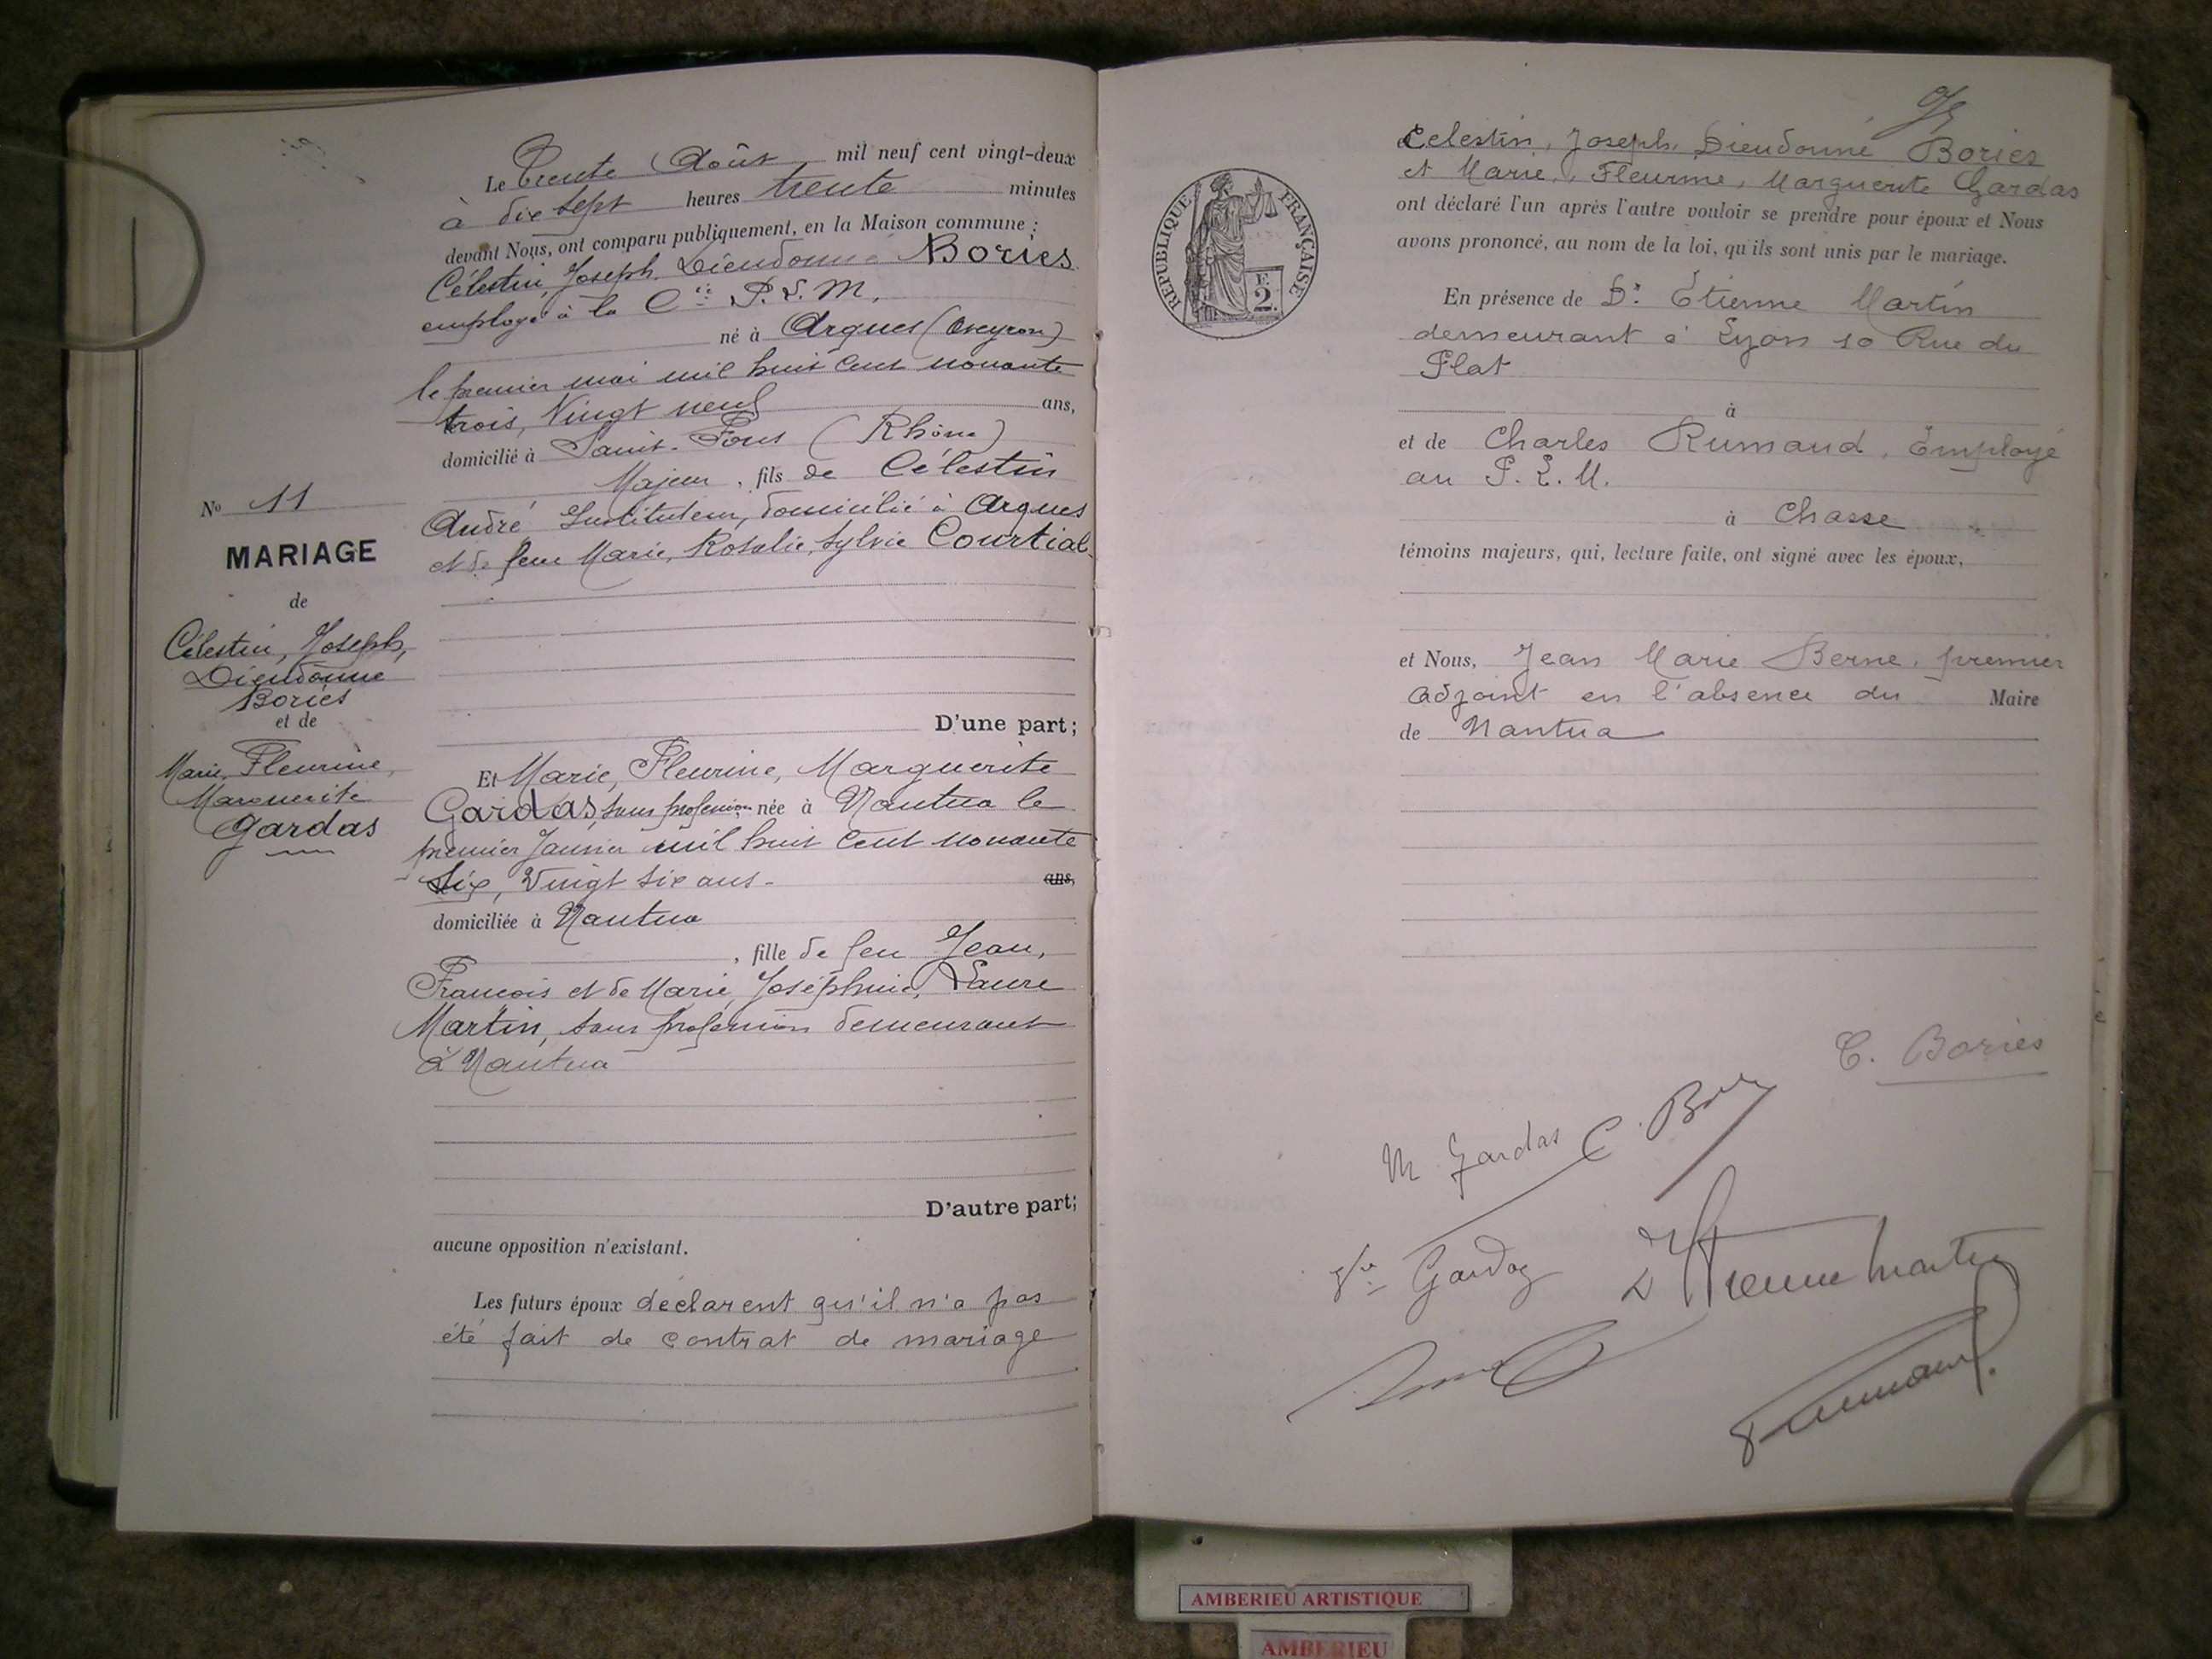 Le Trente Août mil neuf cent vingt-deux
à dix sept heures trente minutes
devant Nous, ont comparu publiquement, en la Maison commune :
Célestin, Joseph, Dieudonné Bories
employé à la Cie P. L. M.
né à Arques (Aveyron)
le premier mai mil huit cent nonante
trois, Vingt neuf ans,
domicilié à Saint-Fons (Rhône)
Majeur, fils de Célestin
André Instituteur, domicilié à Arques
et de feue Marie, Rosalie, Sylvie Courtial
No 11
MARIAGE
de
Célestin, Joseph,
Dieudonné
Bories
et de
Marie, Fleurine,
Marguerite
Gardas
D'une part;
Et Marie, Fleurine, Marguerite
Gardas, sans profession née à Nantua le
premier Janvier mil huit cent nonante
six, Vingt six ans - ans,
domiciliée à Nantua
, fille de feu Jean,
François et de Marie, Joséphine, Laure
Martin, sans profession demeurant
à Nantua
D'autre part;
aucune opposition n'existant.
Les futurs époux déclarent qu'il n'a pas
été fait de contrat de mariage
Celestin, Joseph, Dieudonné Bories
et Marie, Fleurine, Marguerite Gardas
ont déclaré l'un après l'autre vouloir se prendre pour époux et Nous
avons prononcé, au nom de la loi, qu'ils sont unis par le mariage.
REPUBLIQUE FRANÇAISE
F.
2.
En présence de Dr Etienne Martin
demeurant à Lyon 10 Rue du
Plat
à
et de Charles Rumaud, Employé
au P. L. M.
à Chasse
témoins majeurs, qui, lecture faite, ont signé avec les époux,
et Nous, Jean Marie Berne, premier
adjoint en l'absence du Maire
de Nantua
C. Bories
M Gardas C. Bories
Vve Gardas Dr Etienne Martin
Rumaud
AMBERIEU ARTISTIQUE
AMBERIEU